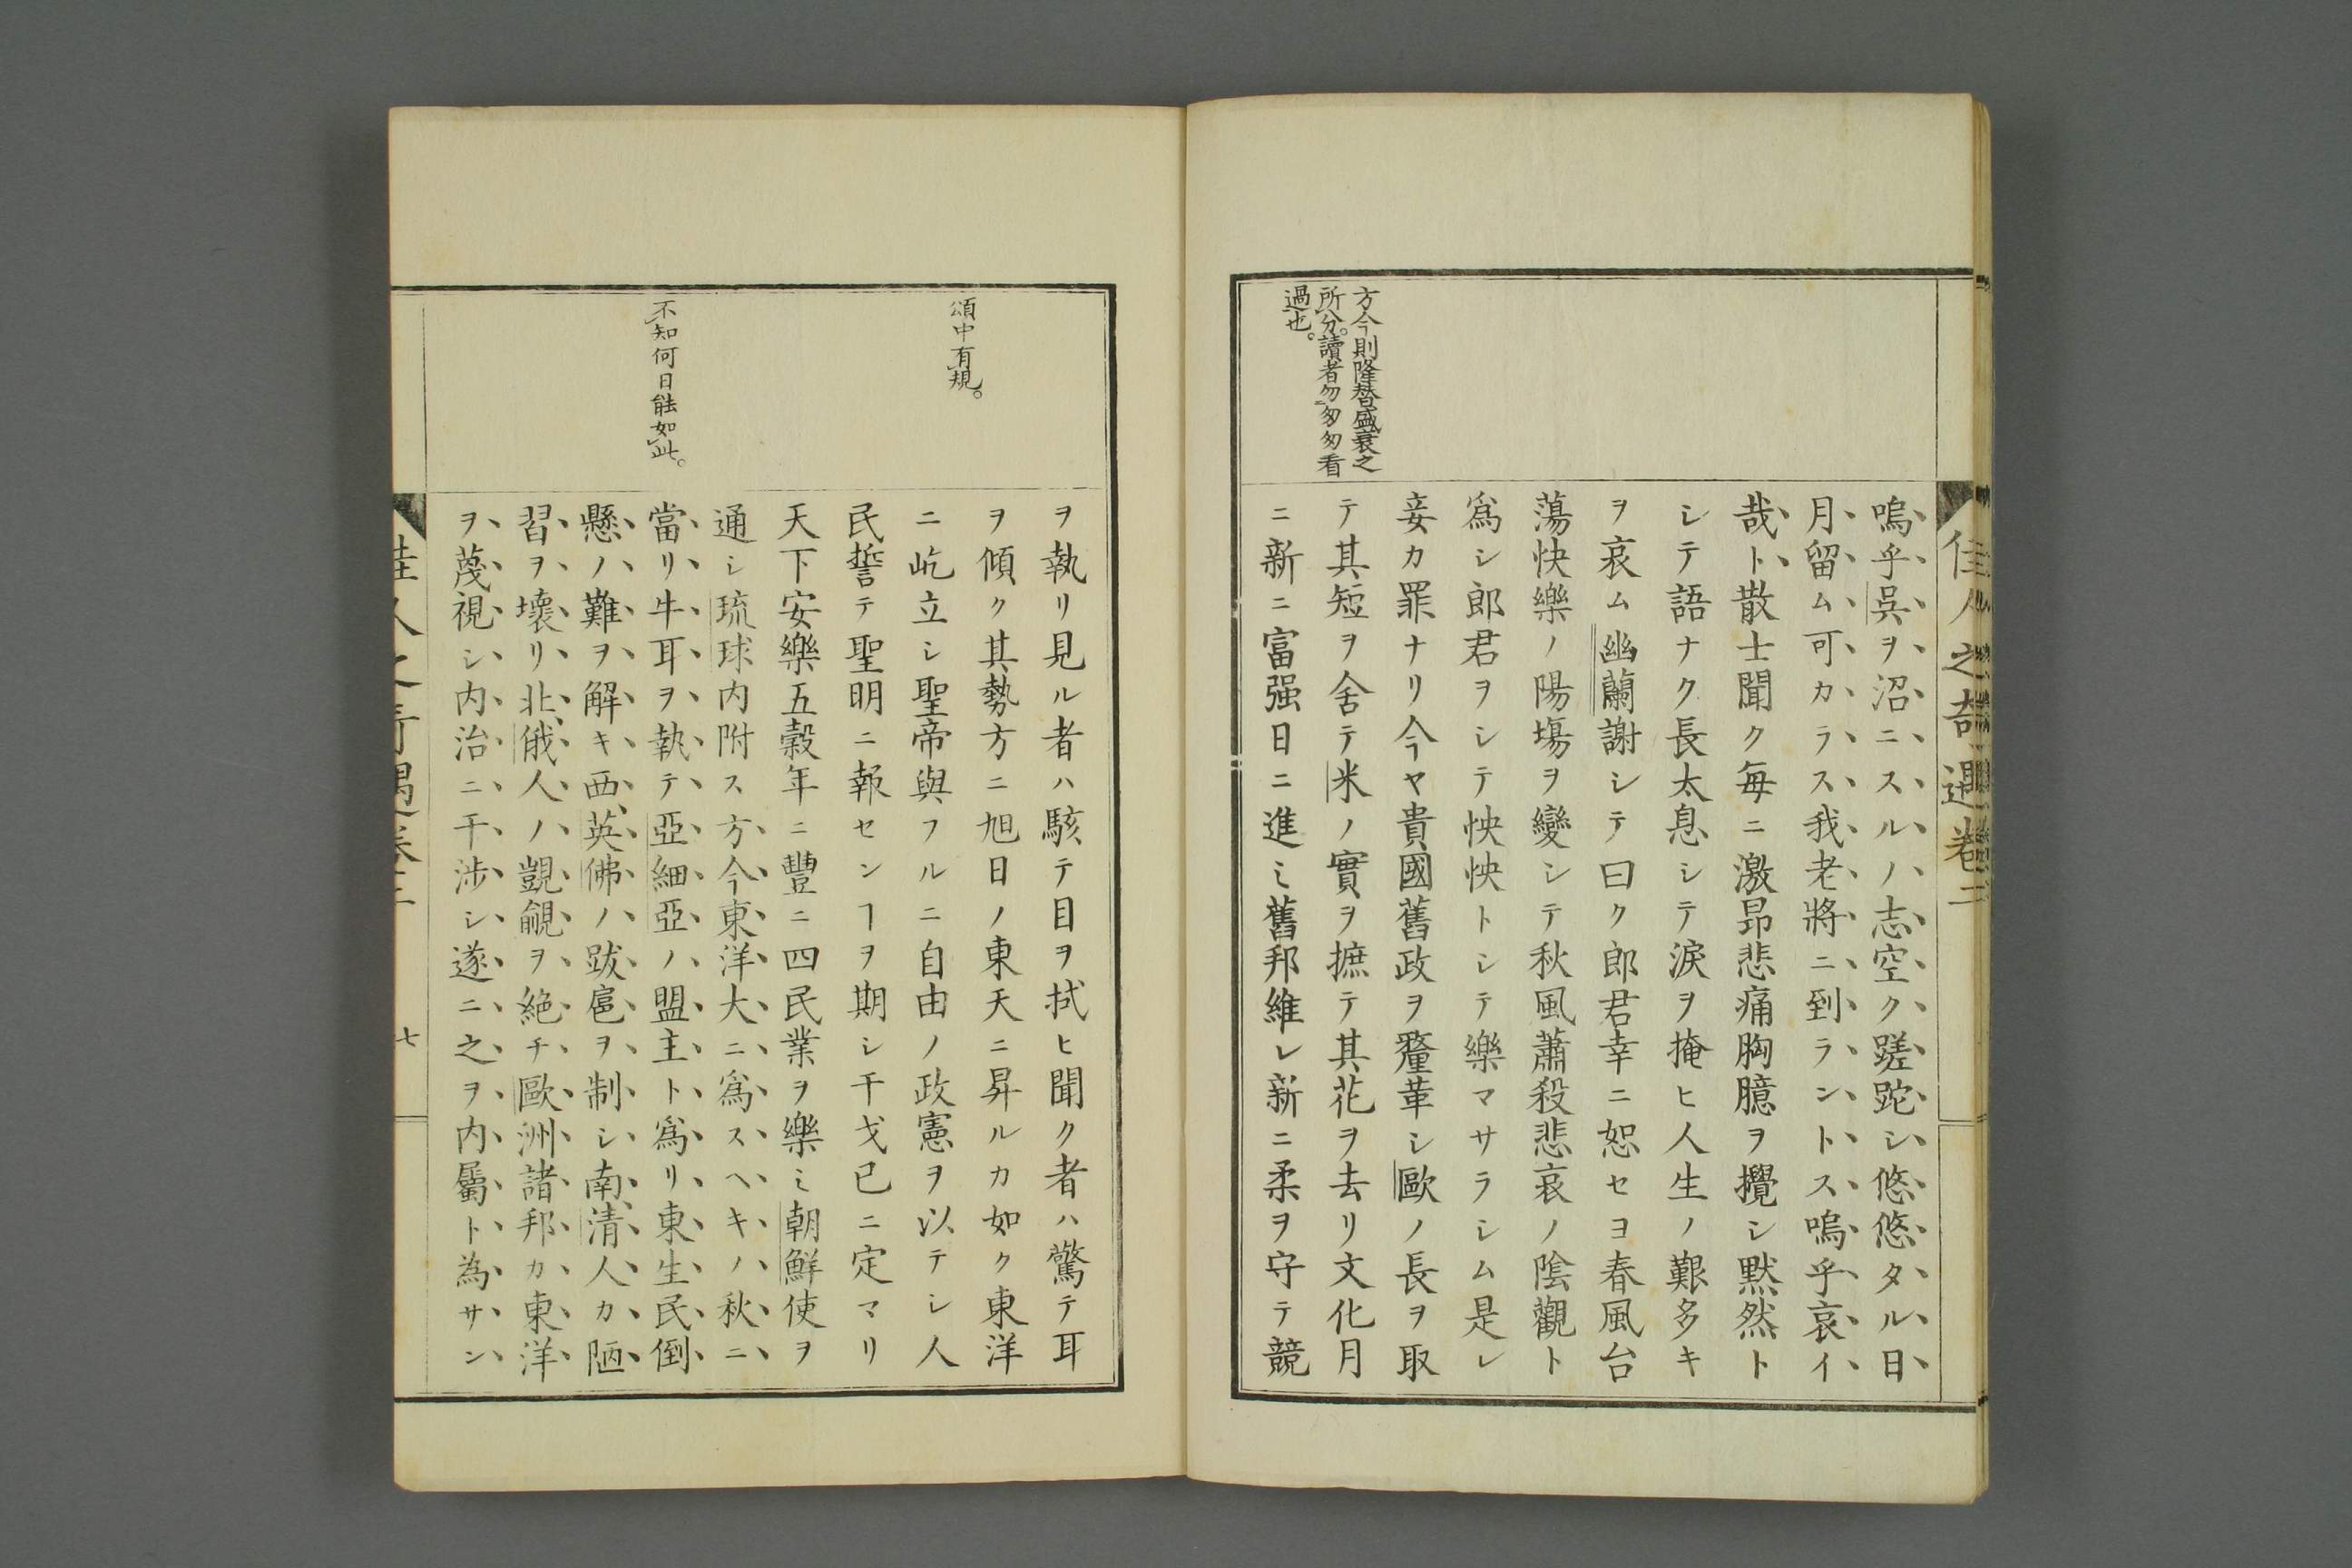 佳人之奇遇卷二
方今則隆替盛衰之
所分。讀者勿匆匆看
過也。
嗚乎呉ヲ沼ニスルノ志空ク蹉跎シ悠悠タル日
月留ム可カラス我老將ニ到ラントス嗚乎哀イ
哉ト散士聞ク每ニ激昂悲痛胸臆ヲ攪シ默然ト
シテ語ナク長太息シテ淚ヲ掩ヒ人生ノ艱多キ
ヲ哀ム幽蘭謝シテ曰ク郎君幸ニ恕セヨ春風台
蕩快樂ノ陽塲ヲ變シテ秋風蕭殺悲哀ノ陰觀ト
爲シ郎君ヲシテ怏怏トシテ樂マサラシム是レ
妾カ罪ナリ今ヤ貴國舊政ヲ釐革シ歐ノ長ヲ取
テ其短ヲ舍テ米ノ實ヲ摭テ其花ヲ去リ文化月
ニ新ニ富强日ニ進ミ舊邦維レ新ニ柔ヲ守テ競
頌中有規。
不知何日能如此。
ヲ執リ見ル者ハ駭テ目ヲ拭ヒ聞ク者ハ驚テ耳
ヲ傾ク其勢方ニ旭日ノ東天ニ昇ルカ如ク東洋
ニ屹立シ聖帝與フルニ自由ノ政憲ヲ以テシ人
民誓テ聖明ニ報センヿヲ期シ干戈已ニ定マリ
天下安樂五穀年ニ豐ニ四民業ヲ樂ミ朝鮮使ヲ
通シ琉球內附ス方今東洋大ニ爲スヘキノ秋ニ
當リ牛耳ヲ執テ亞細亞ノ盟主ト爲リ東生民倒
懸ノ難ヲ解キ西英佛ノ跋扈ヲ制シ南淸人カ陋
習ヲ壞リ北俄人ノ覬覦ヲ絶チ歐洲諸邦カ東洋
ヲ蔑視シ內治ニ干涉シ遂ニ之ヲ內屬ト為サン
佳人之奇遇卷二
七